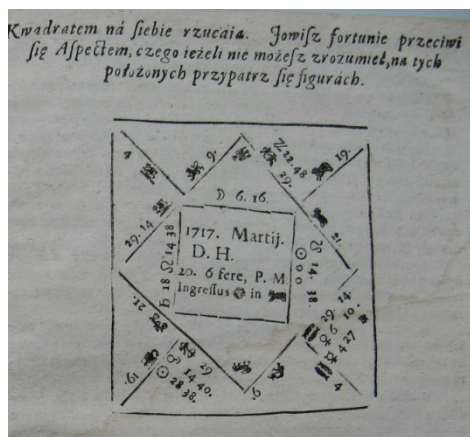 Kwadratem ná siebie rzucáią. Jowisz fortunie przeciwi
się Aspectem, czego ieżeli nie możesz zrozumieć, na tych
położonych przypatrz się figurách.
4
9.
♑ 22.48
29.
19.
21.
☽ 6. 16.
29. 14
♄ 18 ♌ 14 38
1717. Martij.
D. H.
20. 6 fere, P. M
Ingressus ☼ in ♈
☉ 0 0
14. 38.
29 14.
6 10.
4 27
4
21.
19.
29
14 40.
☉ 28 38.
9